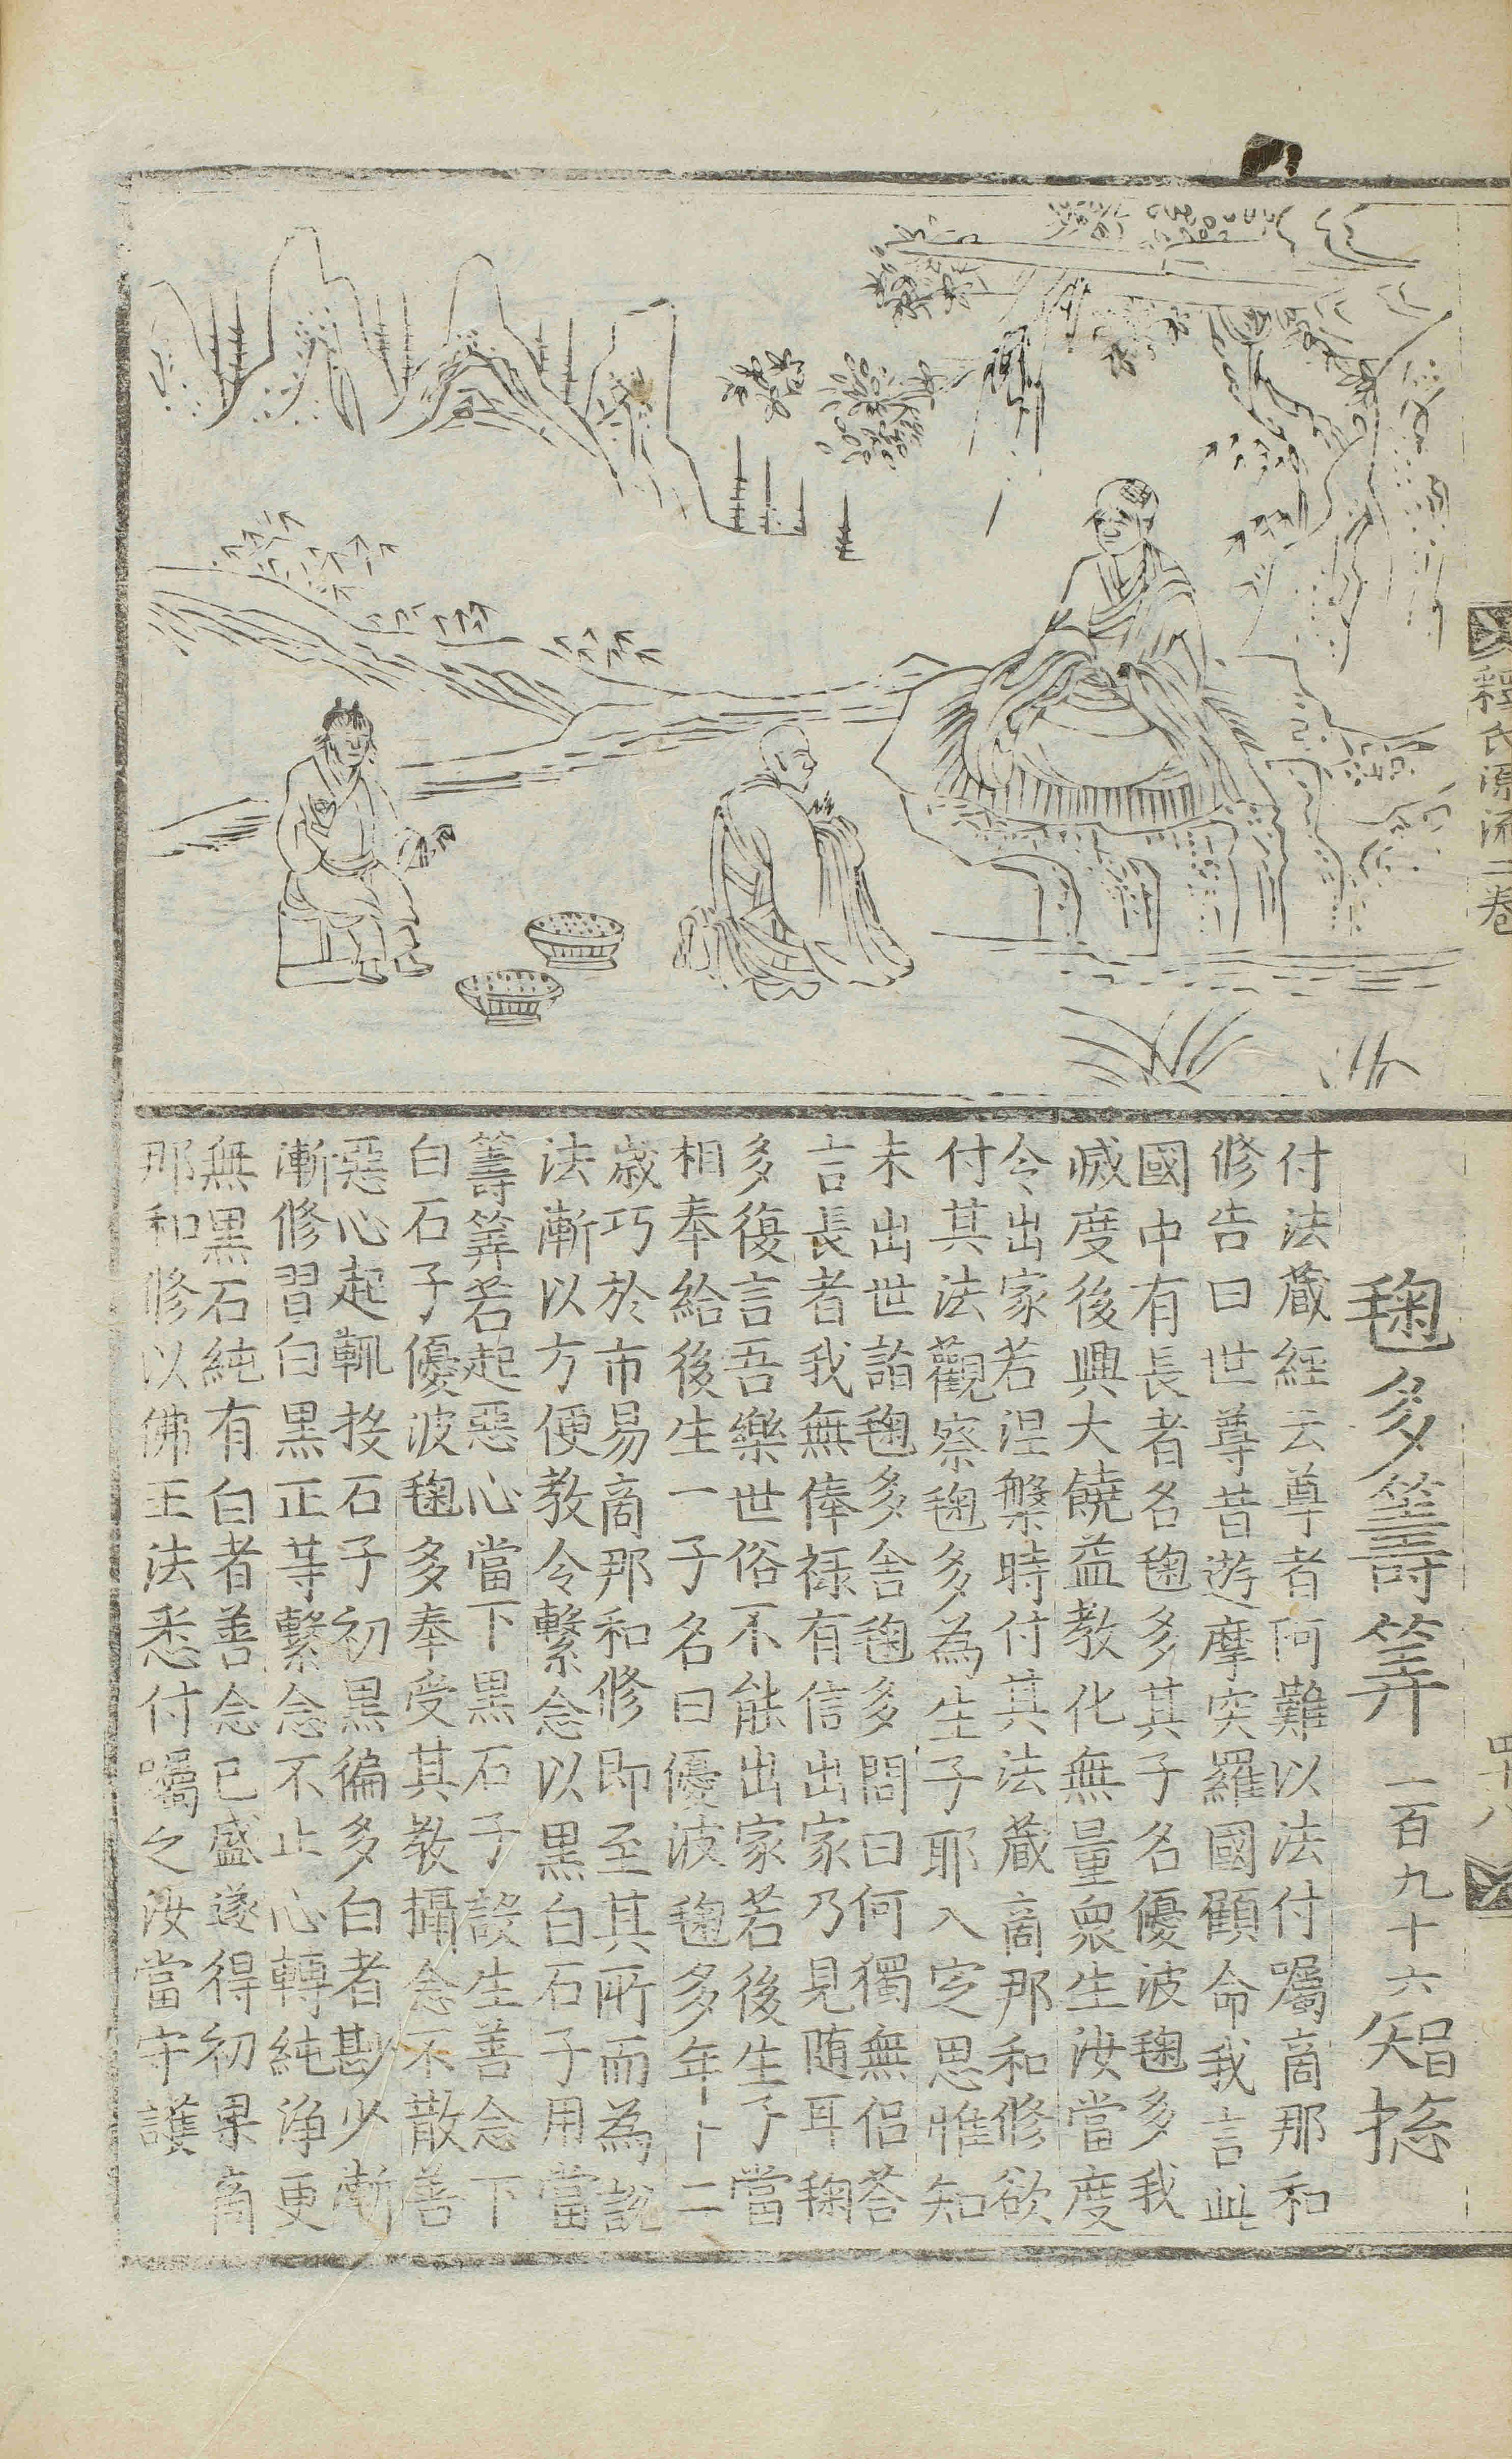 釋氏源流二卷
四十八
毱多籌筭 一百九十六 智惗
付法藏經云尊者阿難以法付囑商那和
修告曰世尊昔遊摩突羅國顧命我言此
國中有長者名毱多其子名優波毱多我
滅度後興大饒益教化無量衆生汝當度
令出家若涅槃時付其法藏商那和修欲
付其法觀察毱多為生子耶入定思惟知
未出世詣毱多舍毱多問曰何獨無侣荅
言長者我無俸禄有信出家乃見随耳毱
多復言吾樂世俗不能出家若後生子當
相奉給後生一子名曰優波毱多年十二
歲巧於市易商那和修即至其所而為說
法漸以方便教令繫念以黑白石子用當
籌筭若起惡心當下黑石子設生善念下
白石子優波毱多奉受其教攝念不散善
惡心起輒投石子初黑徧多白者尠少漸
漸修習白黑正等繫念不止心轉純淨更
無黑石純有白者善念已盛遂得初果商
那和修以佛正法悉付囑之汝當守護